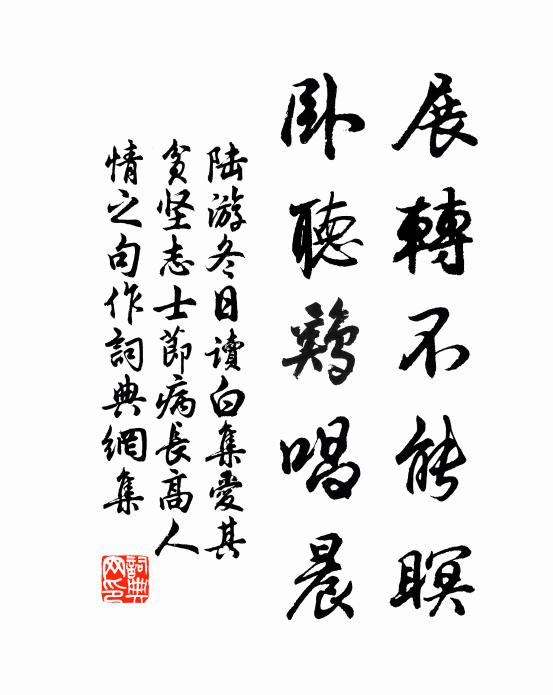 展轉不能瞑
卧聽鷄唱晨
陆游冬日讀白集愛其
貧坚志士節病長高人
情之句作詞典網集
詞典
网印